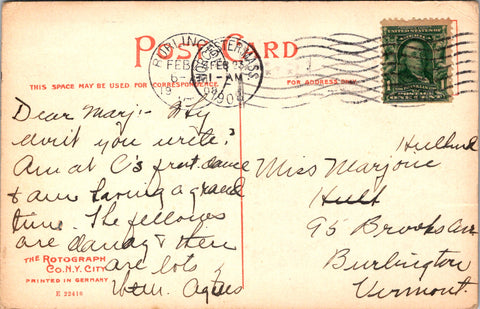 POST CARD
THIS SPACE MAY BE USED FOR CORRESPONDENCE
FOR ADDRESS ONLY
BURLING
FEB
FEB 23
MASS
1-AM
190
Dear Marj:- Why
don't you write?
Am at C's frat. dance
& am having a grand
time. The fellows
are dandy & there
are lots of
them. Agnes
Miss Marjorie
Hulburd
Hult
95 Brooks Ave
Burlington
Vermont.
THE ROTOGRAPH
CO. N.Y. CITY
PRINTED IN GERMANY
E 22416